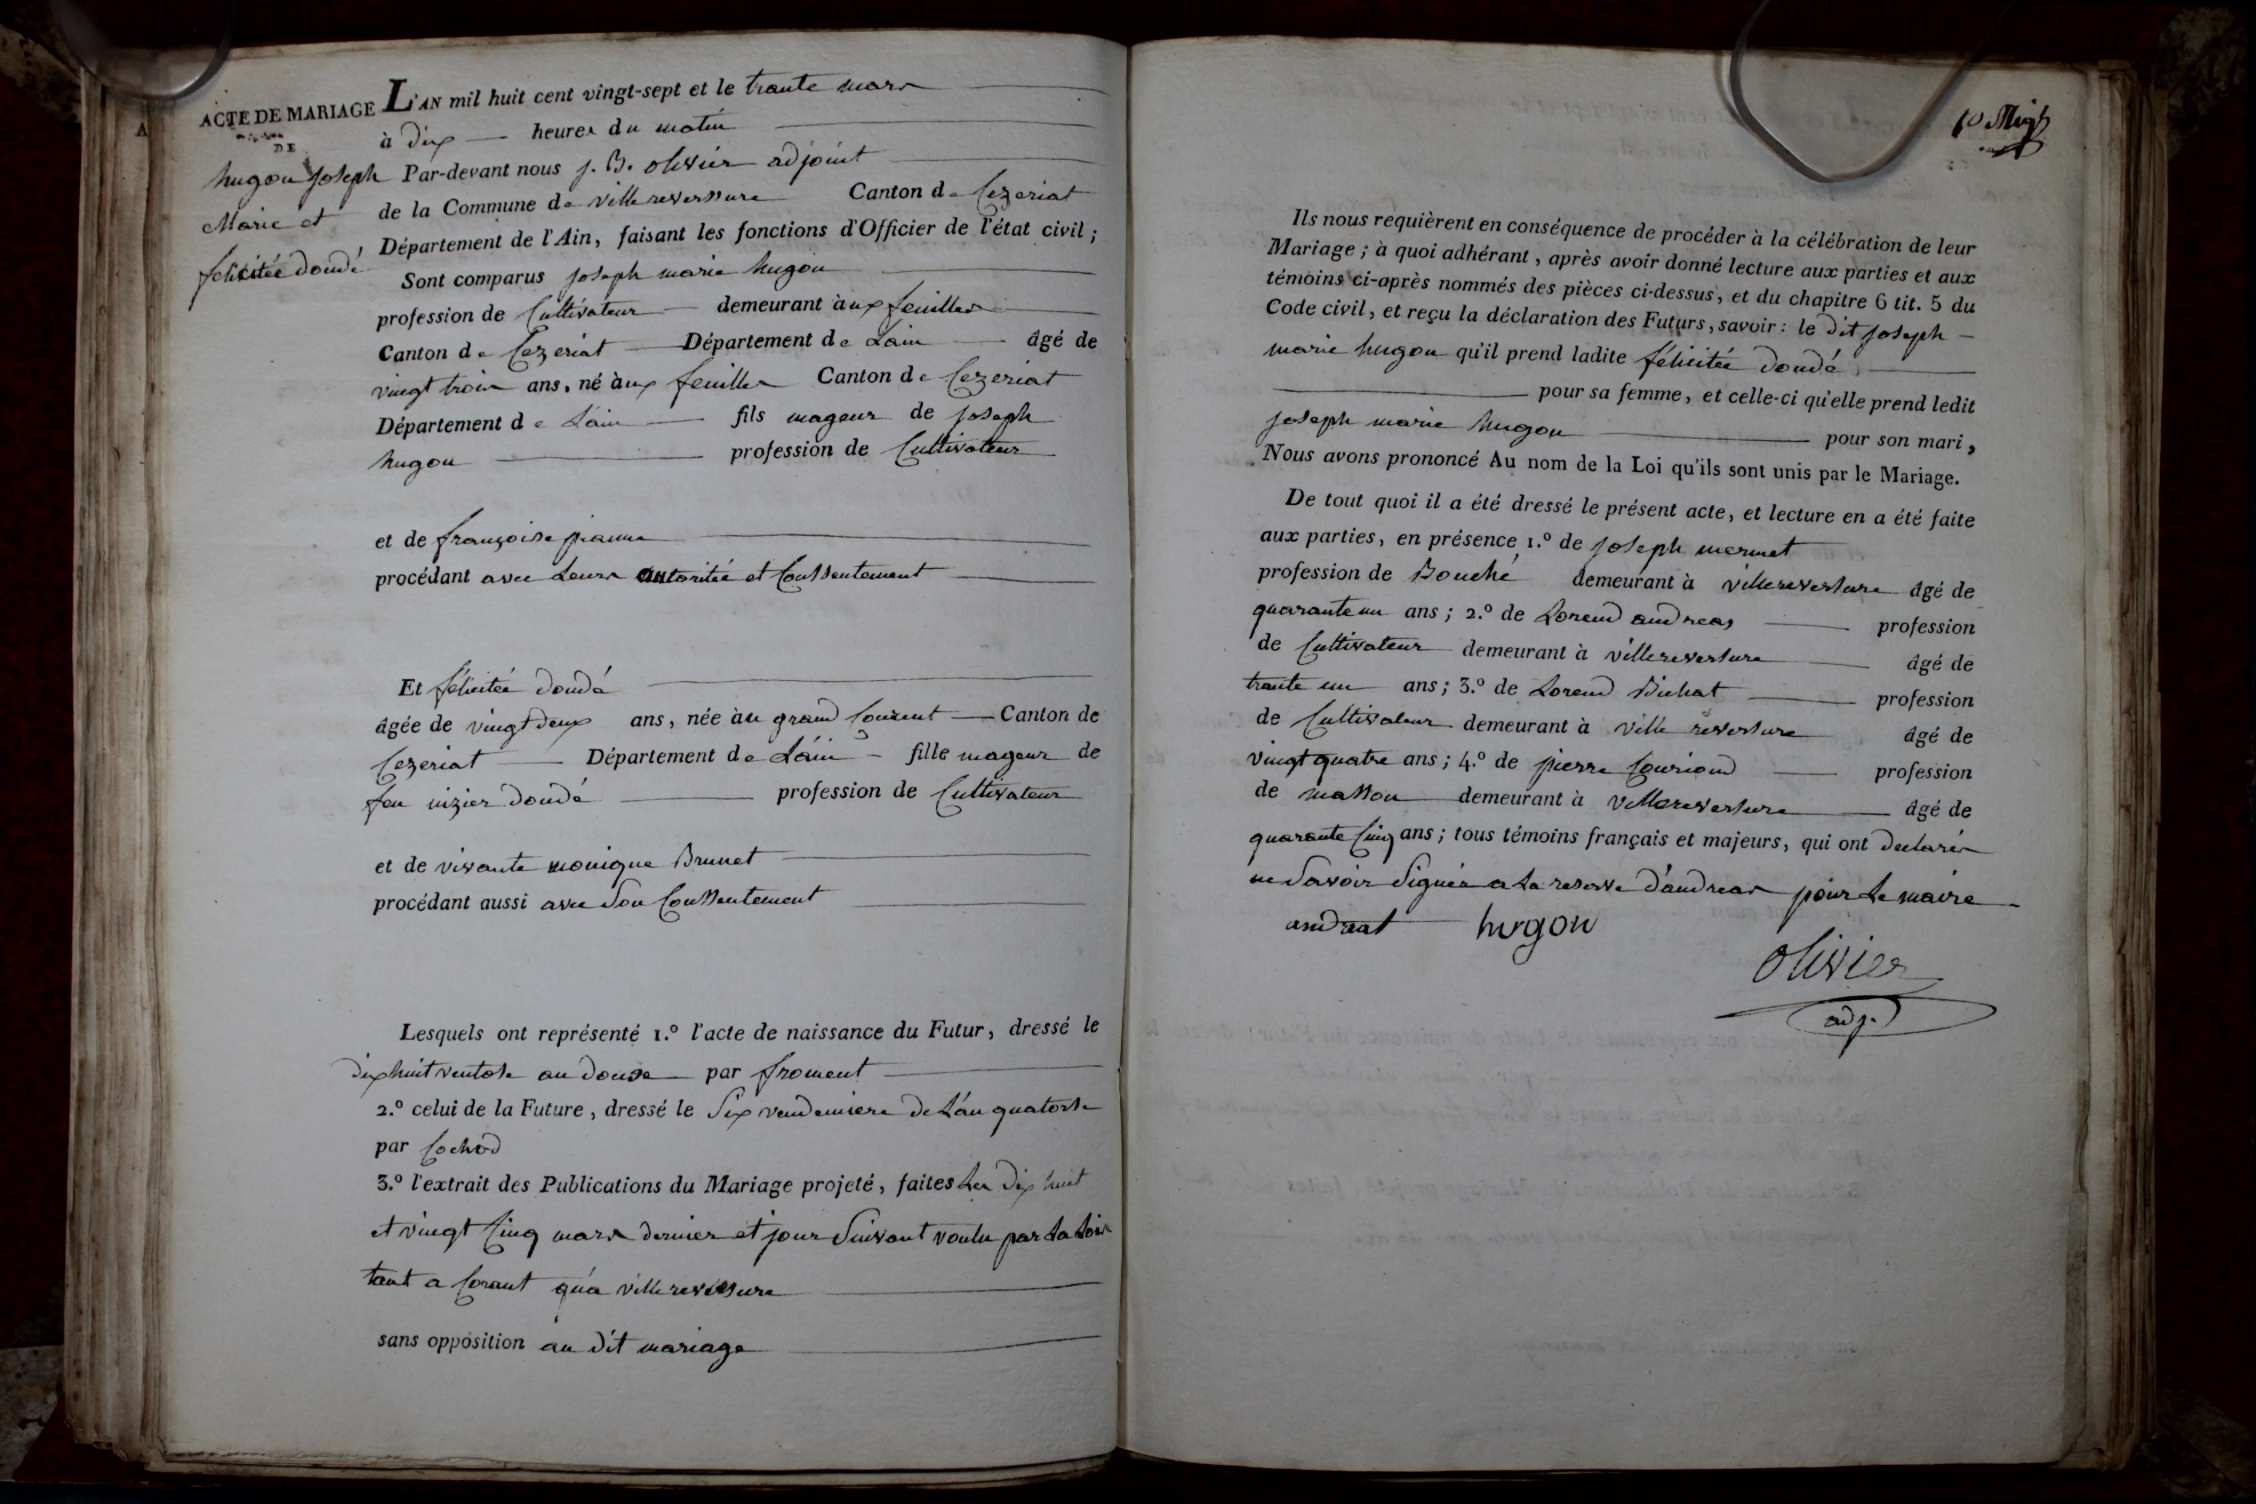 ACTE DE MARIAGE
DE
hugon joseph
Marie et
felicitée doudé
L'AN mil huit cent vingt-sept et le trante mars
à dix heures du matin
Par-devant nous j. B. olivier adjoint
de la Commune de villereversure Canton de Cezeriat
Département de l'Ain, faisant les fonctions d'Officier de l'état civil;
Sont comparus joseph marie hugon
profession de Cultivateur demeurant àux feuilles
Canton de Cezeriat Département de Lain âgé de
vingt trois ans, né àux feuilles Canton de Cezeriat
Département de Lain fils mageur de joseph
hugon profession de Cultivateur
et de françoise pianne
procédant avec Leurs autoritée et Conssentement
Et félicitée doudé
âgée de vingt deux ans, née àu grand Courent Canton de
Cezeriat Département de Láin fille mageur de
feu vizier doudé profession de Cultivateur
et de vivante monique Brunet
procédant aussi avec Son Conssentement
Lesquels ont représenté 1.º l'acte de naissance du Futur, dressé le
dix huit ventose an douse par froment
2.º celui de la Future, dressé le Six vendemiere de Lán quatorse
par Cochod
3.º l'extrait des Publications du Mariage projeté, faites Les dix huit
et vingt Cinq mars dernier et jour Suivant voulu par La Loix
tant a Corant qu'a villereversure
sans opposition au dit mariage
Ils nous requièrent en conséquence de procéder à la célébration de leur
Mariage; à quoi adhérant, après avoir donné lecture aux parties et aux
témoins ci-après nommés des pièces ci-dessus, et du chapitre 6 tit. 5 du
Code civil, et reçu la déclaration des Futurs, savoir: le dit joseph
marie hugon qu'il prend ladite félicitée doudé
pour sa femme, et celle-ci qu'elle prend ledit
joseph marie hugon pour son mari,
Nous avons prononcé Au nom de la Loi qu'ils sont unis par le Mariage.
De tout quoi il a été dressé le présent acte, et lecture en a été faite
aux parties, en présence 1.º de joseph mermet
profession de Bouché demeurant à villereversure âgé de
quarante un ans; 2.º de Lorend andreas profession
de Cultivateur demeurant à villereversure âgé de
trante un ans; 3.º de Lorend Bichat profession
de Cultivateur demeurant à ville reversure âgé de
vingt quatre ans; 4.º de pierre Couriond profession
de masson demeurant à villereversure âgé de
quarante Cinq ans; tous témoins français et majeurs, qui ont declarés
ne Savoir Signer a La reserve d'andreas pour Le maire
andreat hugon
olivier
adj.